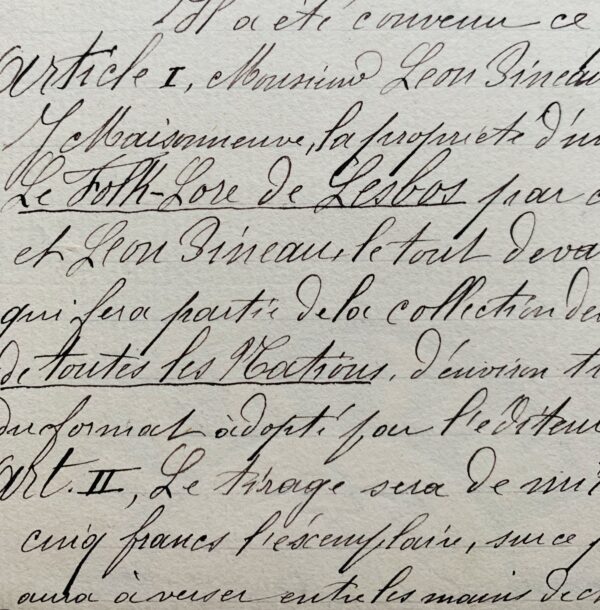 Il a été convenu ce
Article I, Monsieur Léon Pineau
J Maisonneuve, la propriété d'u
Le Folk-Lore de Lesbos par
et Léon Pineau, le tout deva
qui fera partie de la collection de
de toutes les Nations, d'environ tr
du format adopté par l'éditeu
Art. II, Le tirage sera de mil
cinq francs l'exemplaire, sur ce
aura à verser entre les mains de